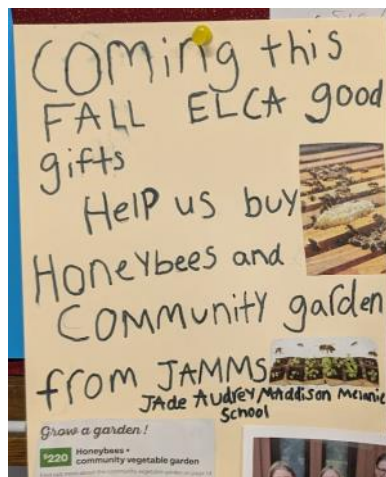 COMing this
FALL ELCA good
gifts
HelP us buy
HoneYbees and
COMMunitY garden
from JAMMS
JAde AUdrey MAddison Melanie
School
Grow a garden!
$220 Honeybees +
community vegetable garden